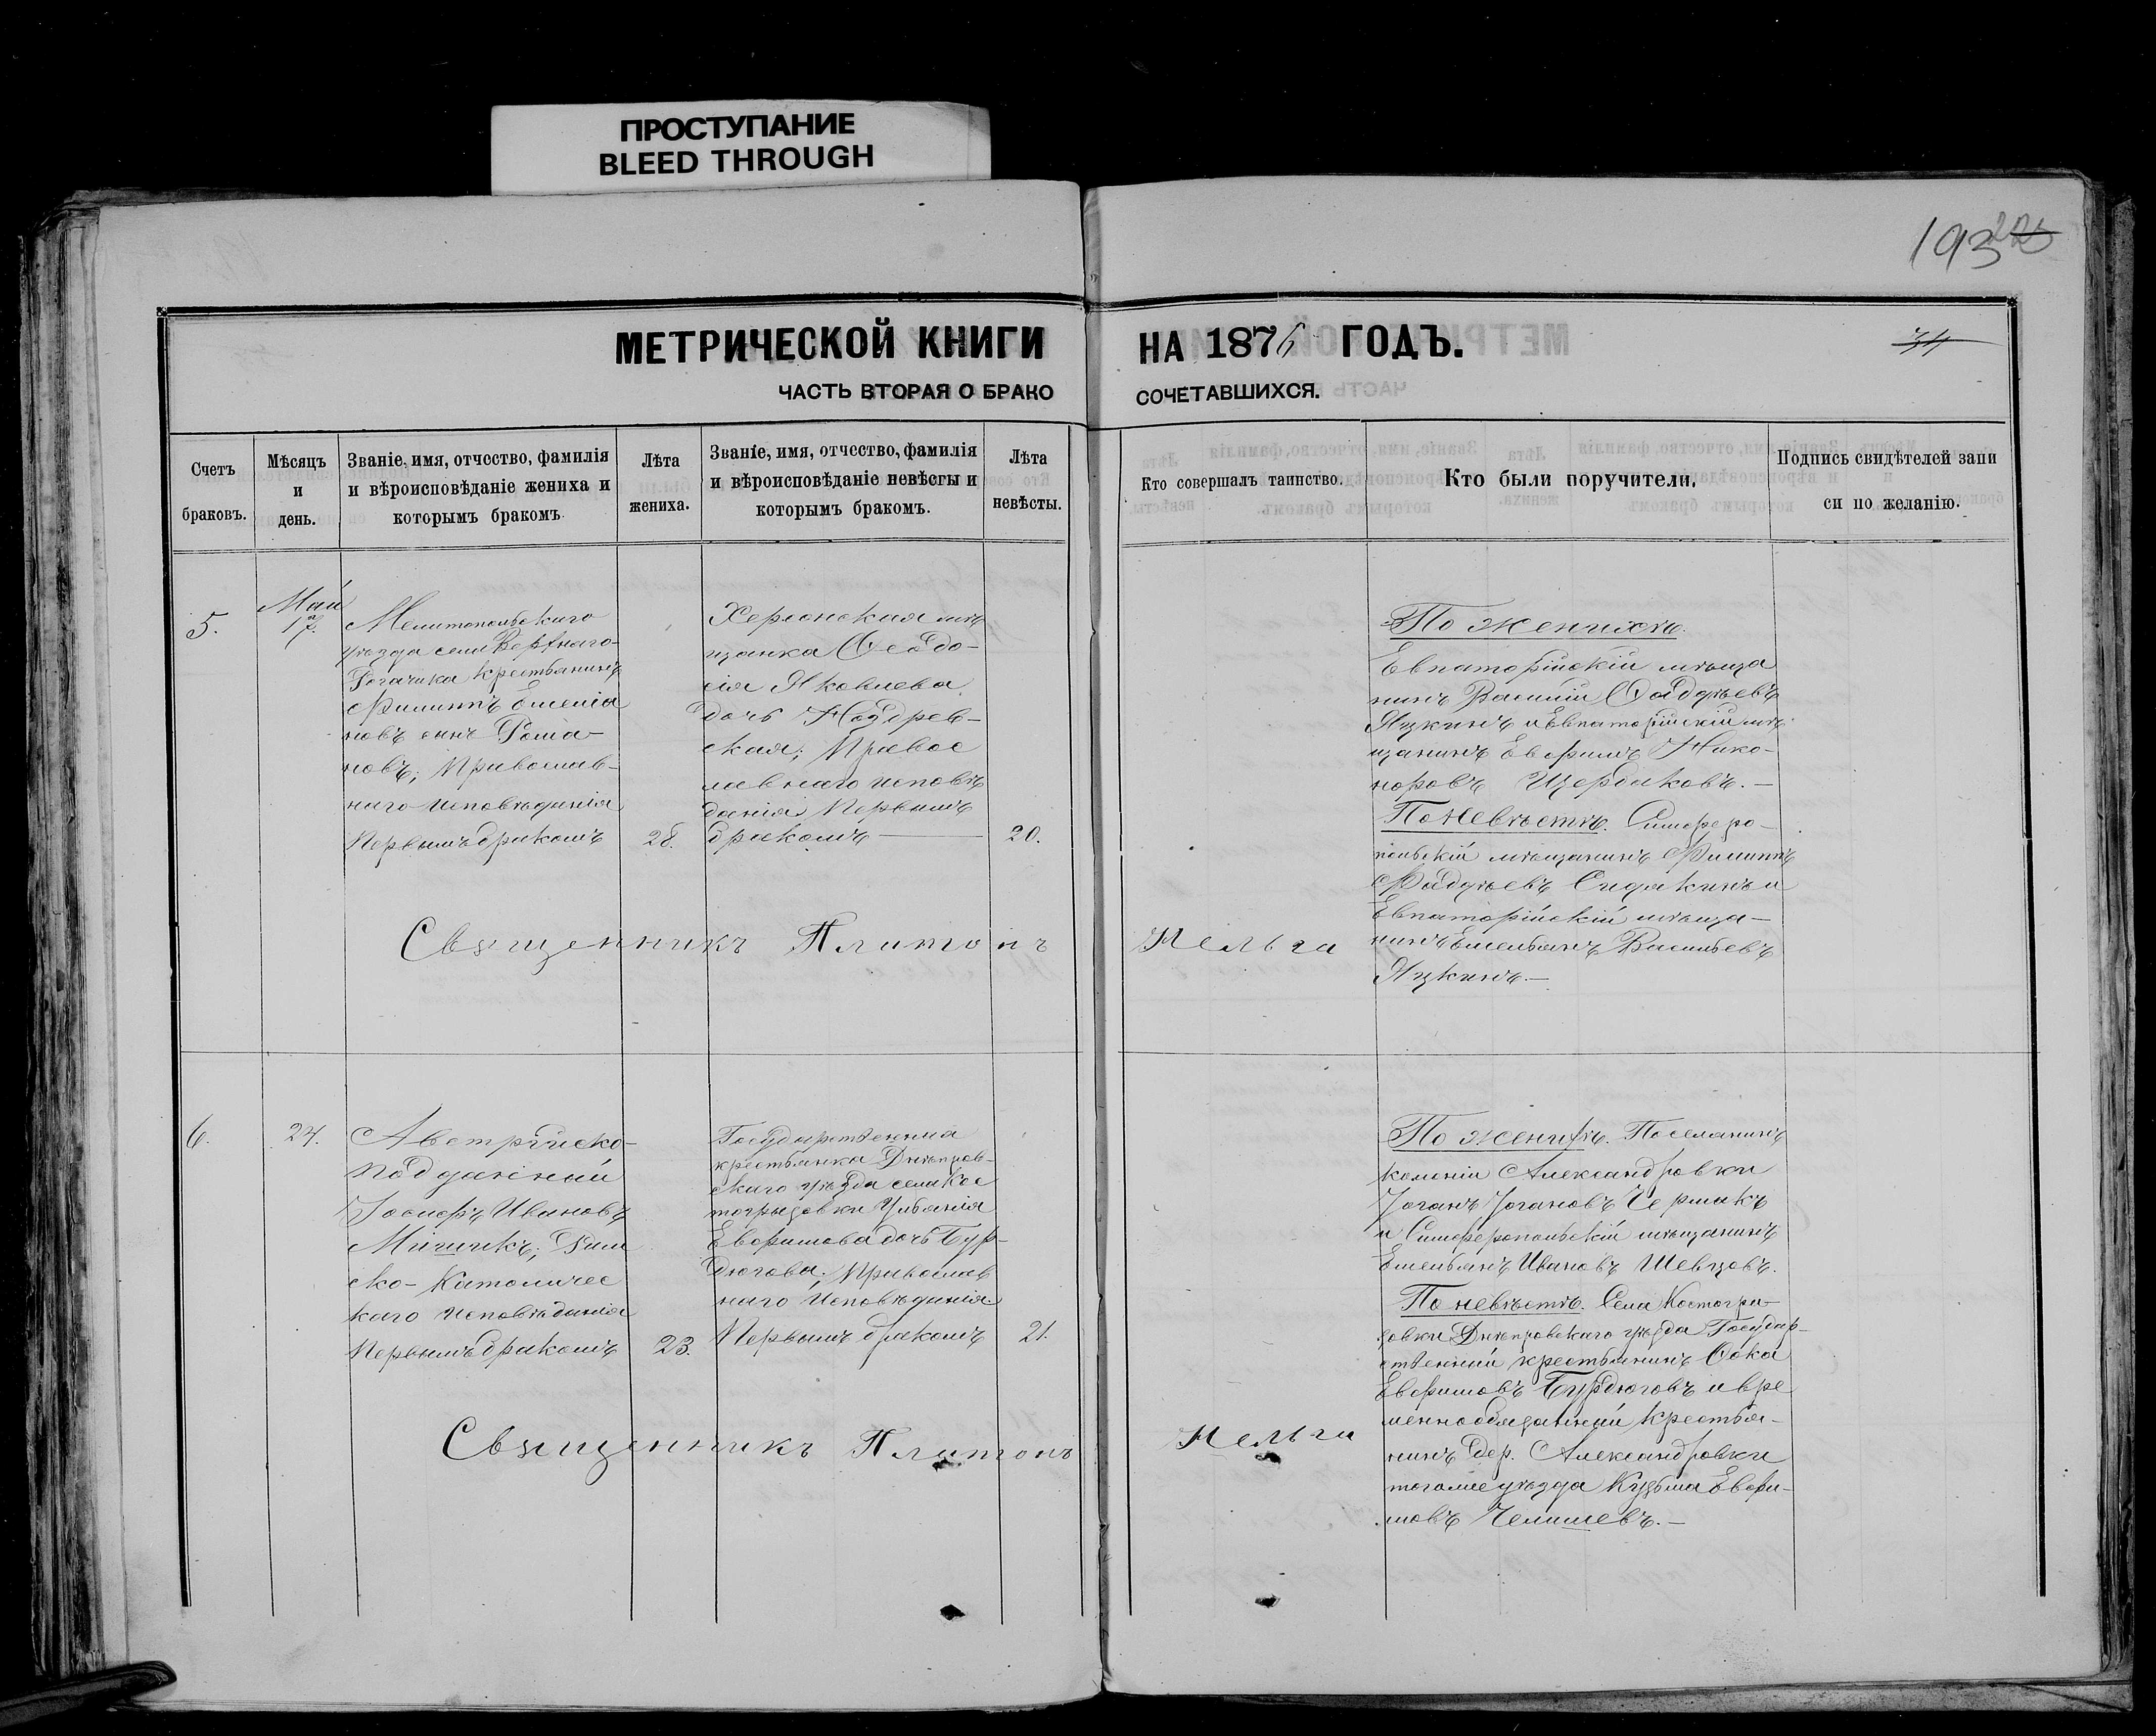 ПРОСТУПАНИЕ
BLEED THROUGH
193
МЕТРИЧЕСКОЙ КНИГИ
НА 1876 ГОДЪ.
34
ЧАСТЬ ВТОРАЯ О БРАКО
СОЧЕТАВШИХСЯ.
Счетъ
браковъ.
Мѣсяцъ
и
день.
Званіе, имя, отчество, фамилія
и вѣроисповѣданіе жениха и
которымъ бракомъ
Лѣта
жениха.
Званіе, имя, отчество, фамилія
и вѣроисповѣданіе невѣсты и
которымъ бракомъ.
Лѣта
невѣсты.
Кто совершалъ таинство.
Кто были поручители,
Подпись свидѣтелей запи
си по желанію.
5.
Май
17.
Мелитопольскаго
уѣзда села Верхняго
Рогачика крестьянинъ
Филиппъ Емелія
новъ сынъ Рома-
новъ; Православ-
наго исповѣданія
Первымъ бракомъ
28.
Херсонская мѣ
щанка Ѳеодо-
сія Яковлева
дочь
ская; Правос
лавнаго исповѣ
данія Первымъ
бракомъ
20.
Священникъ Платонъ
Кельга
По женихѣ.
Евпаторійскій мѣща
нинъ Василій Ѳаддѣевъ
Яцкинъ и Евпаторійскій мѣ-
щанинъ Евфимъ Нико-
норовъ Щербаковъ.—
По невѣстѣ. Симферо-
польскій мѣщанинъ Филиппъ
Фаддѣевъ Сидякинъ и
Евпаторійскій мѣща-
нинъ Емельянъ Васильевъ
Яцкинъ.—
6.
24.
Австрійско-
подданный
Іосифъ Ивановъ
Рим
ско-Католичес
каго исповѣданія
Первымъ бракомъ
23.
Государственна
крестьянка Днѣпров-
скаго уѣзда села Кос
тогрызовки Ульянія
Евфимова дочь Бур-
дюгова; Православ
наго исповѣданія.
Первымъ бракомъ
21.
Священникъ Платонъ
Кельга
По женихѣ. Поселянинъ
колоніи Александровки
Іоганъ Іогановъ Чермакъ
и Симферопольскій мѣщанинъ
Емельянъ Ивановъ Шевцовъ.
По невѣстѣ. Села Костогры-
зовки Днѣпровскаго уѣзда Государ-
ственный крестьянинъ Ѳока
Евфимовъ Бурдюговъ и вре
меннообязанный крестья-
нинъ дер. Александровки
тогоже уѣзда Кузьма Евфи-
мовъ Чемишевъ.—